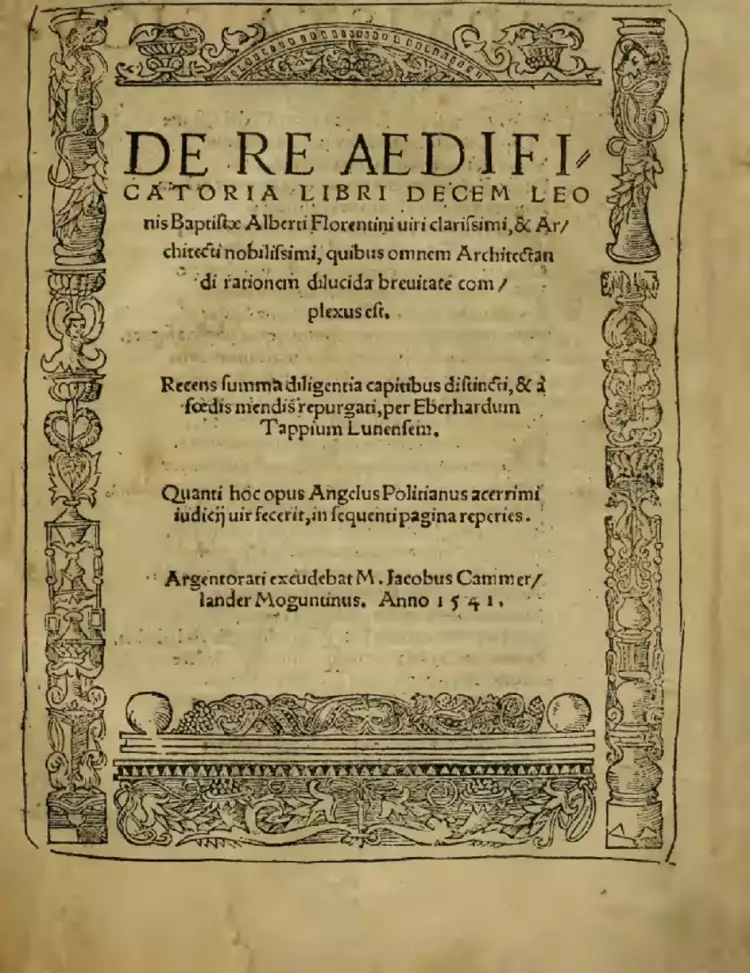 DE RE AEDIFI⸗
CATORIA LIBRI DECEM LEO
nis Baptistæ Alberti Florentini uiri clarissimi, & Ar/
chitecti nobilissimi, quibus omnem Architectan
di rationem dilucida breuitate com/
plexus est.
Recens summa diligentia capitibus distincti, & à
fœdis mendis repurgati, per Eberhardum
Tappium Lunensem.
Quanti hoc opus Angelus Politianus acerrimi
iudicij uir fecerit, in sequenti pagina reperies.
Argentorati excudebat M. Iacobus Cammer/
lander Moguntinus. Anno 1541.